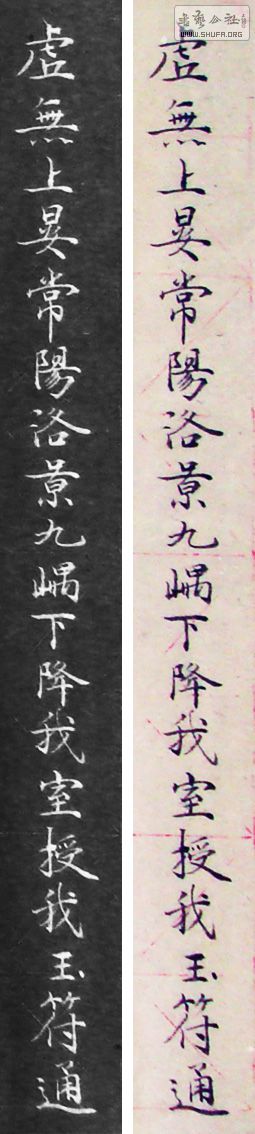 虛無上晏常陽洛景九嵎下降我室授我玉符通
虛無上晏常陽洛景九嵎下降我室授我玉符通
書藝公社
WWW.SHUFA.ORG